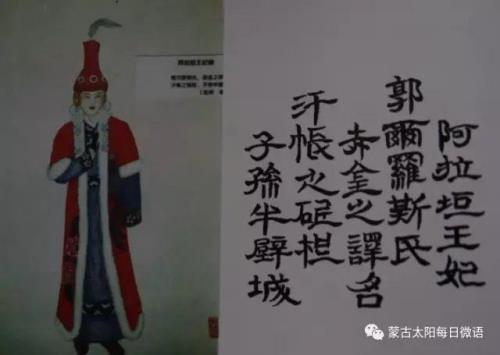 阿拉坦王妃
郭爾羅斯氏
赤金之譯名
汗帳之砥柱
子孫半壁城
蒙古太阳每日微语